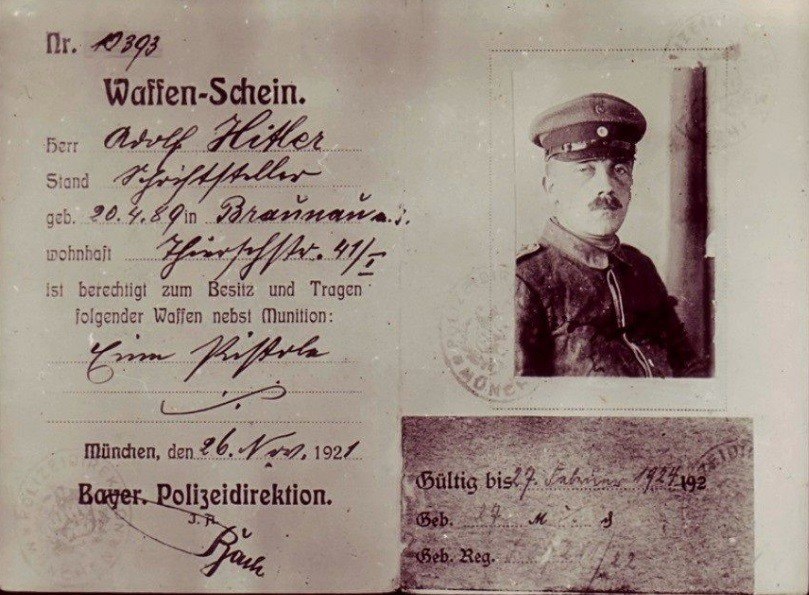 Nr. 10393
Waffen-Schein.
Herr Adolf Hitler
Stand Schriftsteller
geb. 20.4.89 in Braunau a. I.
wohnhaft Thierschstr. 41/I
ist berechtigt zum Besitz und Tragen
folgender Waffen nebst Munition:
Eine Pistole
München, den 26. Nov. 1921
Bayer. Polizeidirektion.
MÜNCHEN
Gültig bis 27. Februar 192
Geb.
Geb. Reg.